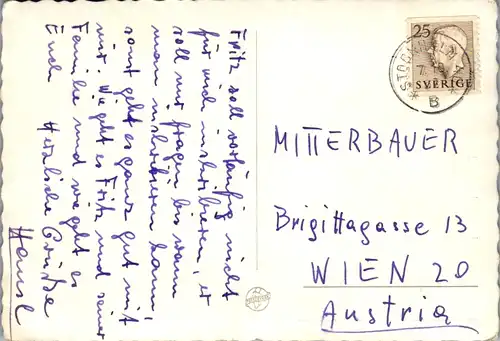 Fritz soll vorläufig nicht
für mich inskribieren, er
soll nur fragen bis wann
man inskribieren kann,
sonst geht es ganz gut mit
mir. Wie geht es Fritz und seiner
Familie und wie geht es
Euch Herzliche Grüße
Hansl
25
SVERIGE
STOCKHOLM
B
MITTERBAUER
Brigittagasse 13
WIEN 20
Austria